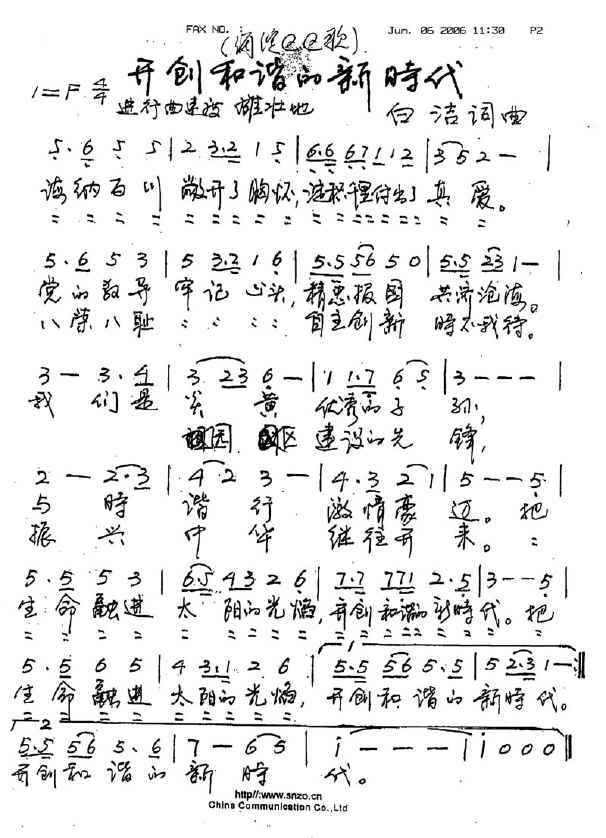 FAX NO. Jun. 06 2006 11:30 P2
开创和谐的新時代
1=F 4/4 进行曲速度 雄壮地 白洁词曲
5. 6 5 5 | 2 3.2 1 5 | 6.6 67 1 1 2 | 3 5 2 — |
海纳百川 敞开了胸怀, 付出了真爱。
5. 6 5 3 | 5 3.2 1 6 | 5.5 56 5 0 | 5.5 23 1 — |
党的教导 牢记心头, 精忠报国 共济沧海。
八荣八耻 〃 〃 〃 〃 自主创新 時不我待。
3 — 3. 4 | 3 23 6 — | 1 1.7 6 5 | 3 — — — |
我们是 炎黄 优秀的子孙,
园区 建设的先锋,
2 — 2.3 | 4 2 3 — | 4. 3 2 1 | 5 — — 5 |
与時谐行 激情豪迈。把
振兴中华 继往开来。〃
5. 5 5 3 | 6.5 4 3 2 6 | 7.7 771 2. 5 | 3 — — 5 |
生命融进 太阳的光焰, 开创和谐的新時代。把
5. 5 6 5 | 4 3.1 2 6 | 5.5 56 5. 5 | 5 2.3 1 — :||
生命融进 太阳的光焰, 开创和谐的新時代。
5.5 56 5. 6 | 7 — 6 5 | i — — — | i 0 0 0 ||
开创和谐的新時代。
http//:www.snzo.cn
China Communication Co.,Ltd